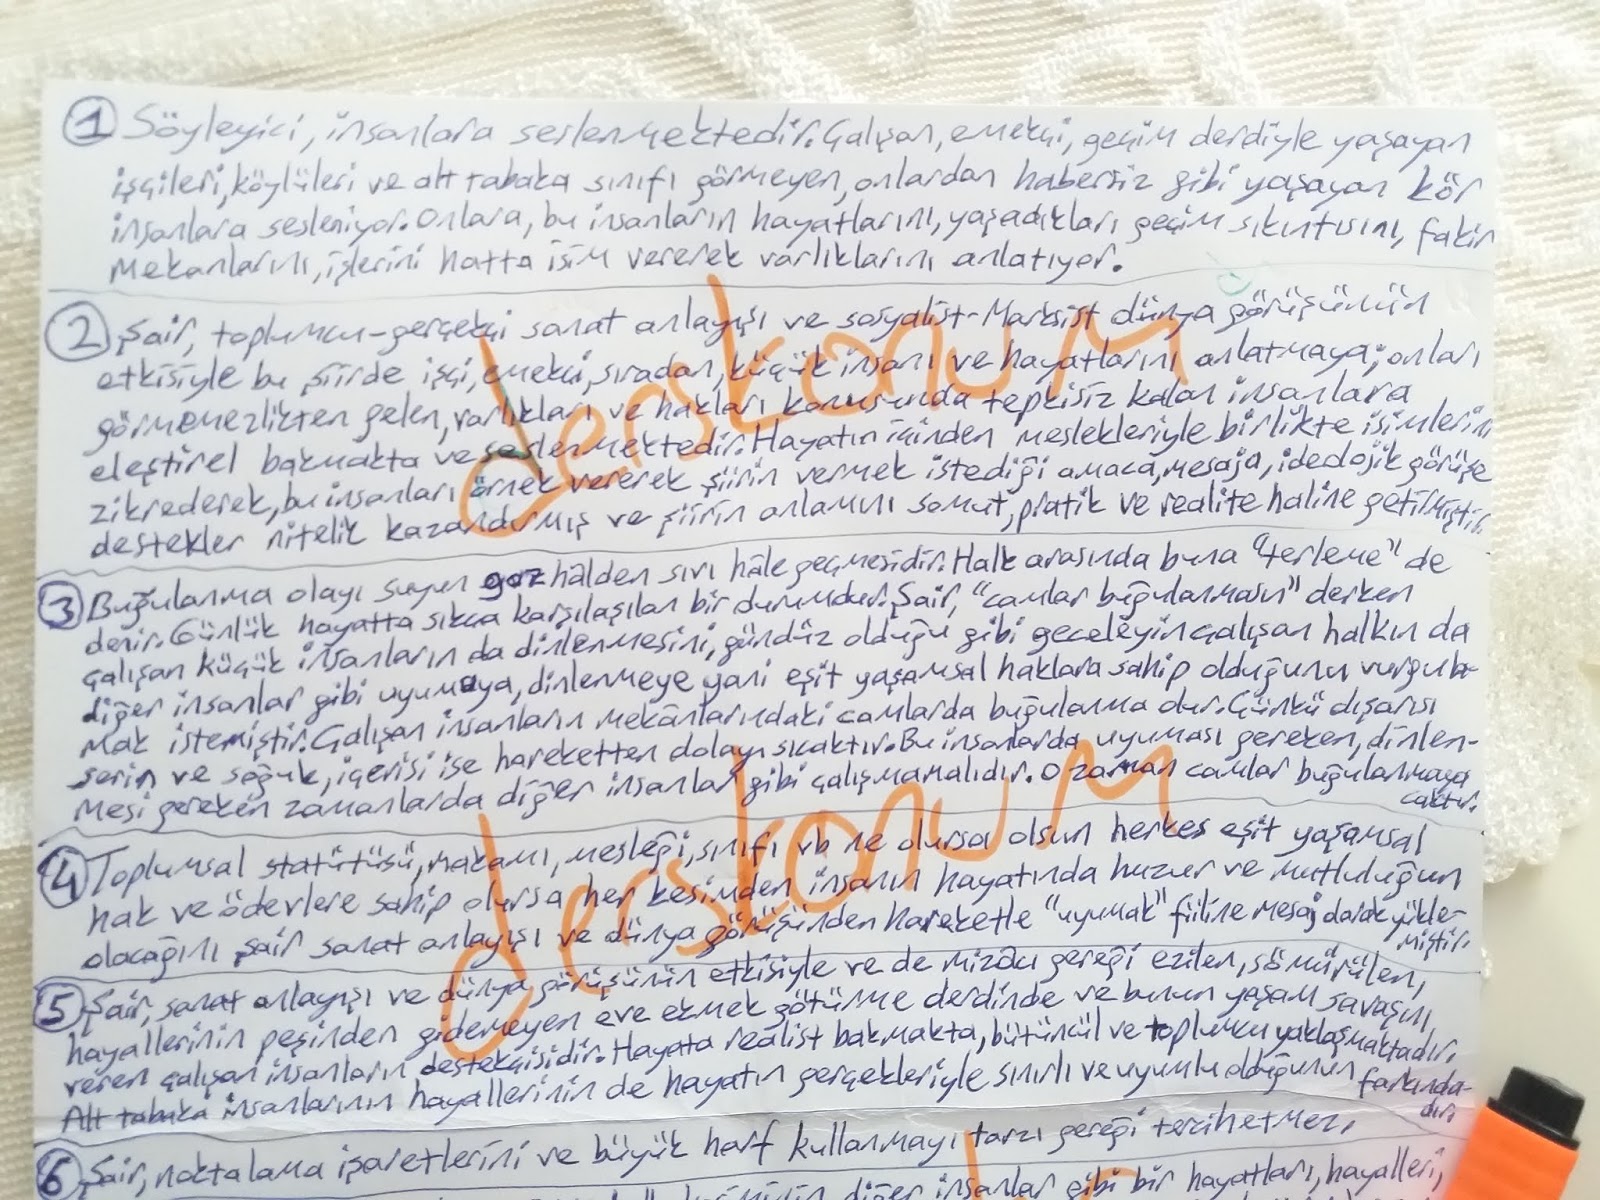 1 Söyleyici, insanlara seslenmektedir. Çalışan, emekçi, geçim derdiyle yaşayan
işçileri, köylüleri ve alt tabaka sınıfı görmeyen, onlardan habersiz gibi yaşayan kör
insanlara sesleniyor. Onlara, bu insanların hayatlarını, yaşadıkları geçim sıkıntısını, fakir
mekanlarını, işlerini hatta isim vererek varlıklarını anlatıyor.
2 Şair, toplumcu-gerçekçi sanat anlayışı ve sosyalist-Marksist dünya görüşünün
etkisiyle bu şiirde işçi, emekçi, sıradan, küçük insanı ve hayatlarını anlatmaya; onları
görmemezlikten gelen, varlıkları ve hakları konusunda tepkisiz kalan insanlara
eleştirel bakmakta ve seslenmektedir. Hayatın içinden meslekleriyle birlikte isimlerini
zikrederek, bu insanları örnek vererek şiirin vermek istediği amaca, mesaja, ideolojik görüşe
destekler nitelik kazandırmış ve şiirin anlamını somut, pratik ve realite haline getirmiştir.
3 Buğulanma olayı suyun gaz hâlden sıvı hâle geçmesidir. Halk arasında buna "terleme" de
denir. Günlük hayatta sıkça karşılaşılan bir durumdur. Şair, "camlar buğulanmasın" derken
çalışan küçük insanların da dinlenmesini, gündüz olduğu gibi geceleyin çalışan halkın da
diğer insanlar gibi uyumaya, dinlenmeye yani eşit yaşamsal haklara sahip olduğunu vurgula-
mak istemiştir. Çalışan insanların mekânlarındaki camlarda buğulanma olur. Çünkü dışarısı
serin ve soğuk, içerisi ise hareketten dolayı sıcaktır. Bu insanlarda uyuması gereken, dinlen-
mesi gereken zamanlarda diğer insanlar gibi çalışmamalıdır. O zaman camlar buğulanmaya
caktır.
4 Toplumsal statütüsü, makamı, mesleği, sınıfı vb ne olursa olsun herkes eşit yaşamsal
hak ve ödevlere sahip olursa her kesimden insanın hayatında huzur ve mutluluğun
olacağını şair sanat anlayışı ve dünya görüşünden hareketle "uyumak" fiiline mesaj olarak yükle-
miştir.
5 Şair, sanat anlayışı ve dünya görüşünün etkisiyle ve de mizacı gereği ezilen, sömürülen,
hayallerinin peşinden gidemeyen eve ekmek götürme derdinde ve bunun yaşam savaşını
veren çalışan insanların destekçisidir. Hayata realist bakmakta, bütüncül ve toplumcu yaklaşmaktadır.
Alt tabaka insanlarının hayallerinin de hayatın gerçekleriyle sınırlı ve uyumlu olduğunun farkında-
dır.
6 Şair, noktalama işaretlerini ve büyük harf kullanmayı tarzı gereği tercih etmez.
diğer insanlar gibi bir hayatları, hayalleri,
derskonum
derskonum